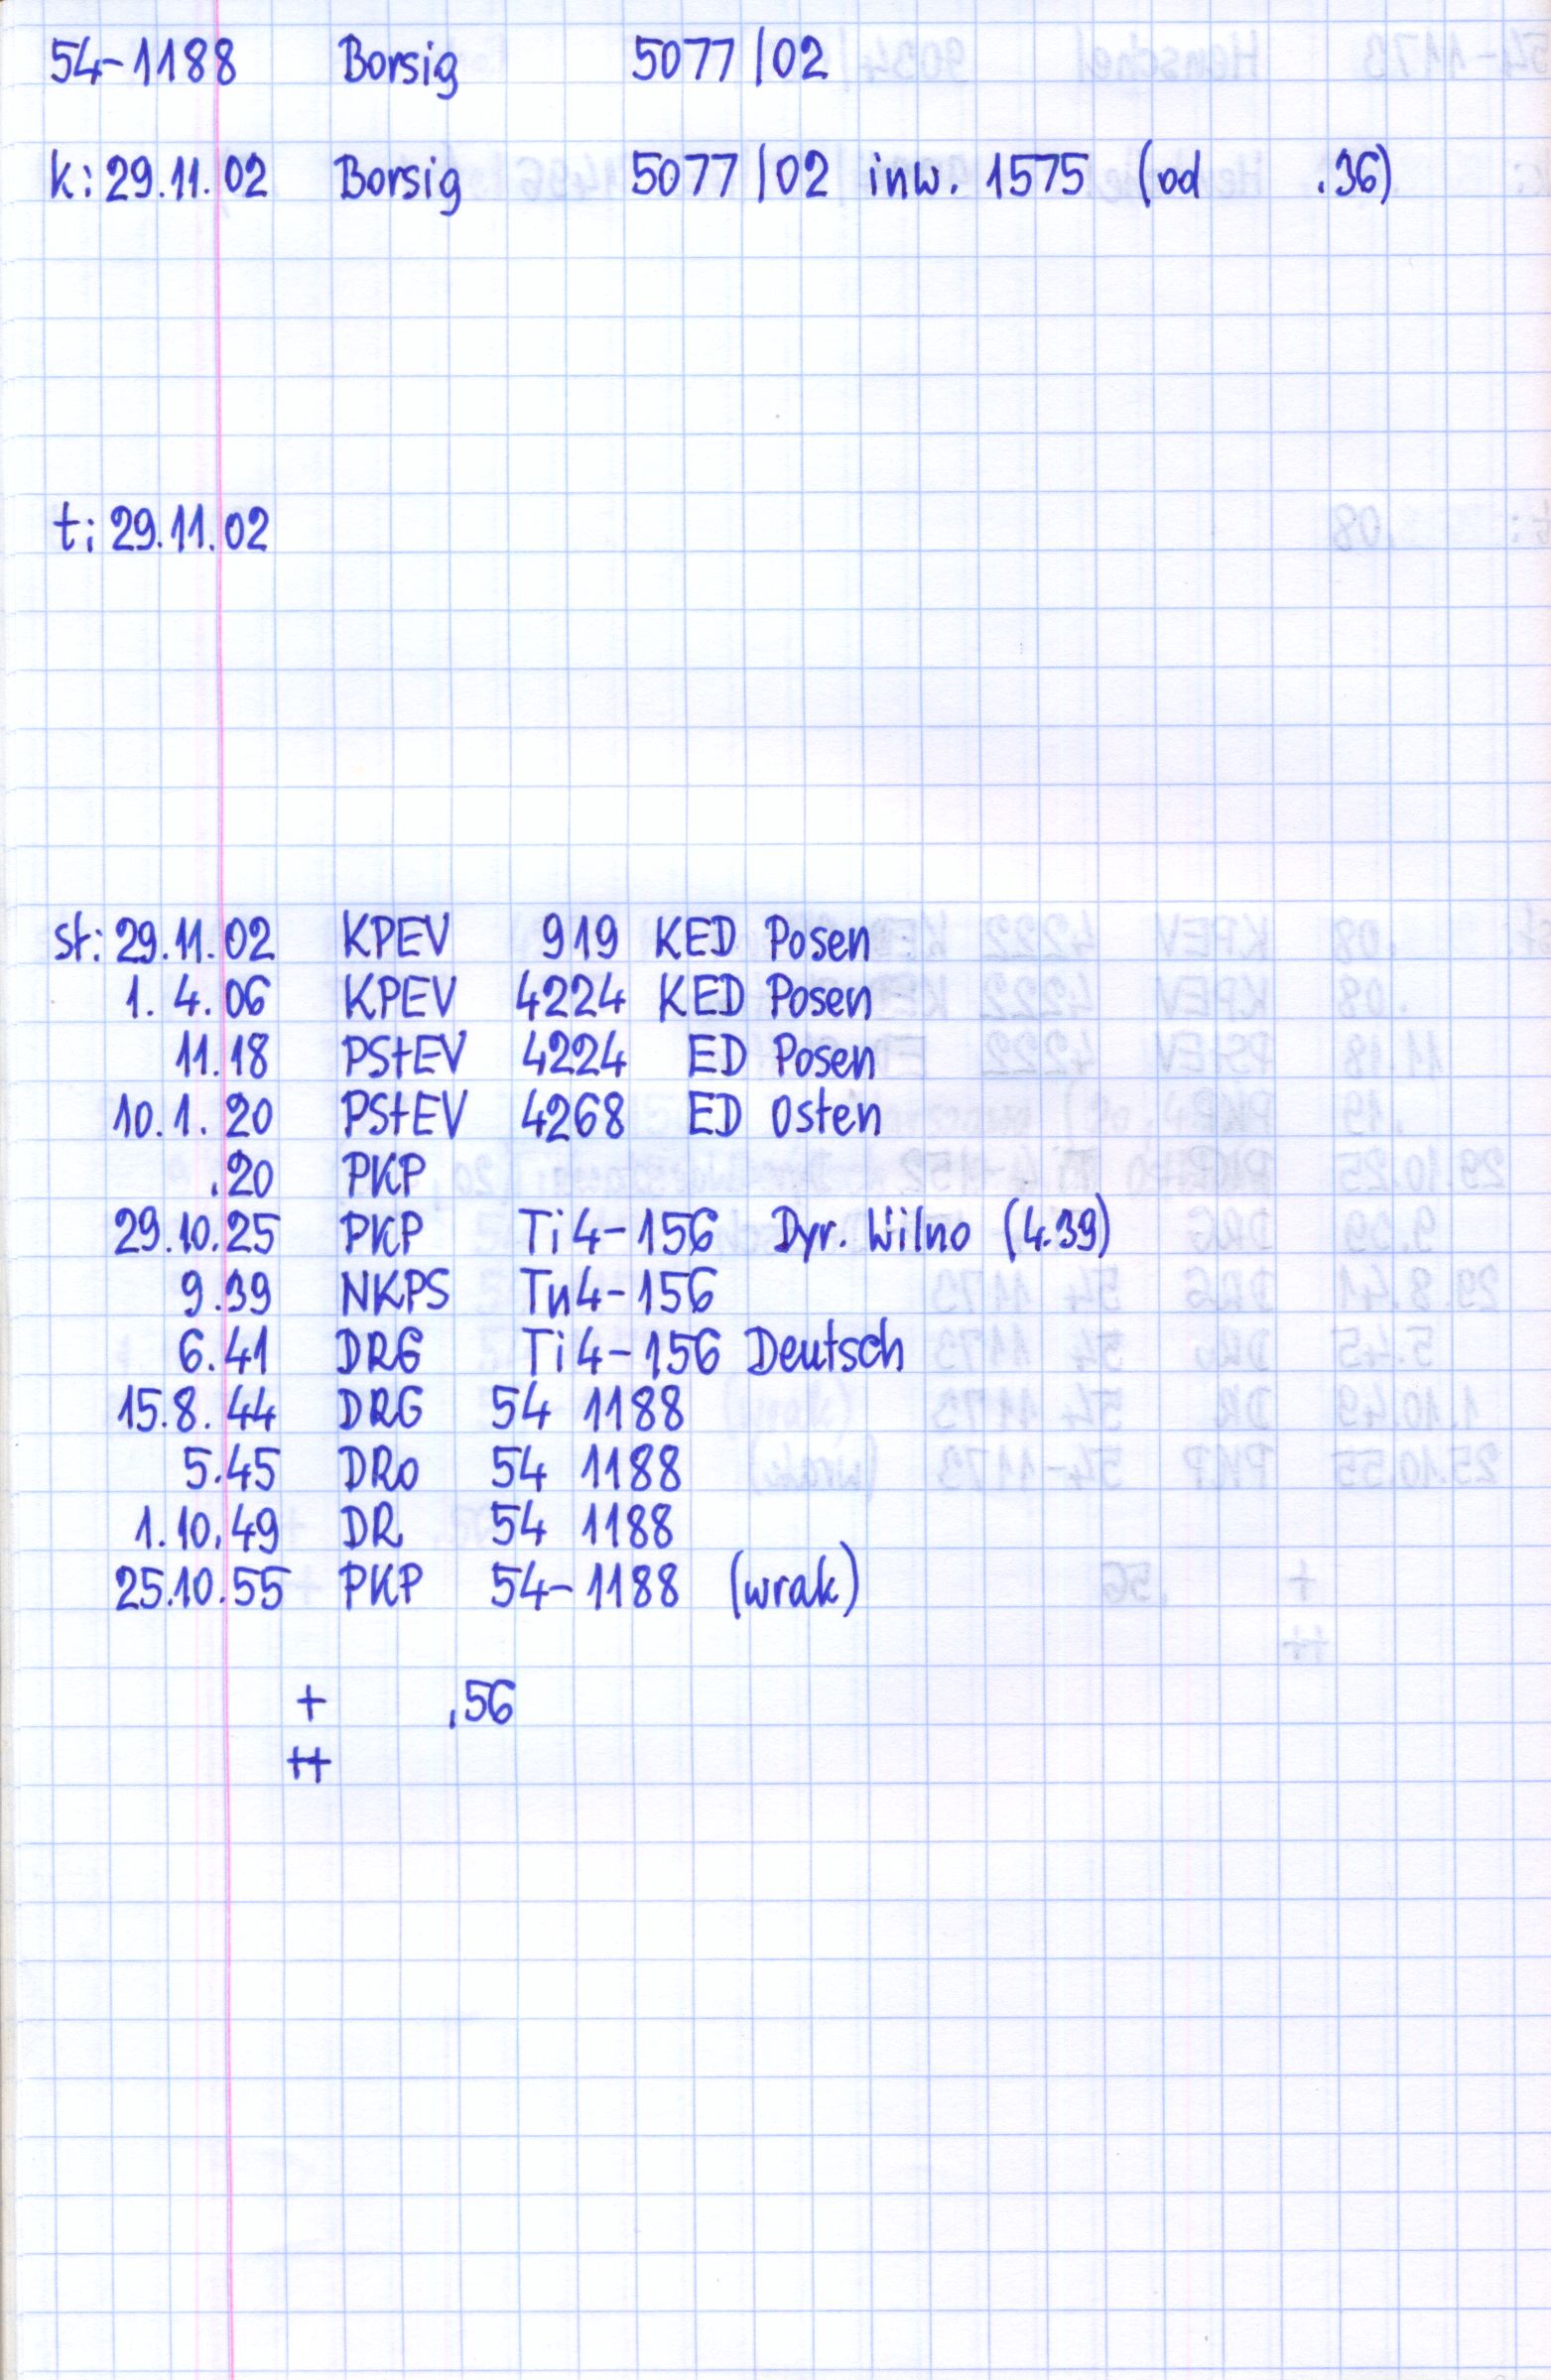 54-1188 Borsig 5077/02
k: 29.11.02 Borsig 5077/02 inw. 1575 (od .36)
t: 29.11.02
st: 29.11.02 KPEV 919 KED Posen
1.4.06 KPEV 4224 KED Posen
11.18 PStEV 4224 ED Posen
10.1.20 PStEV 4268 ED Osten
.20 PKP
29.10.25 PKP Ti4-156 Dyr. Wilno (4.39)
9.39 NKPS Tu4-156
6.41 DRG Ti4-156 Deutsch
15.8.44 DRG 54 1188
5.45 DRo 54 1188
1.10.49 DR 54 1188
25.10.55 PKP 54-1188 (wrak)
+ .56
++